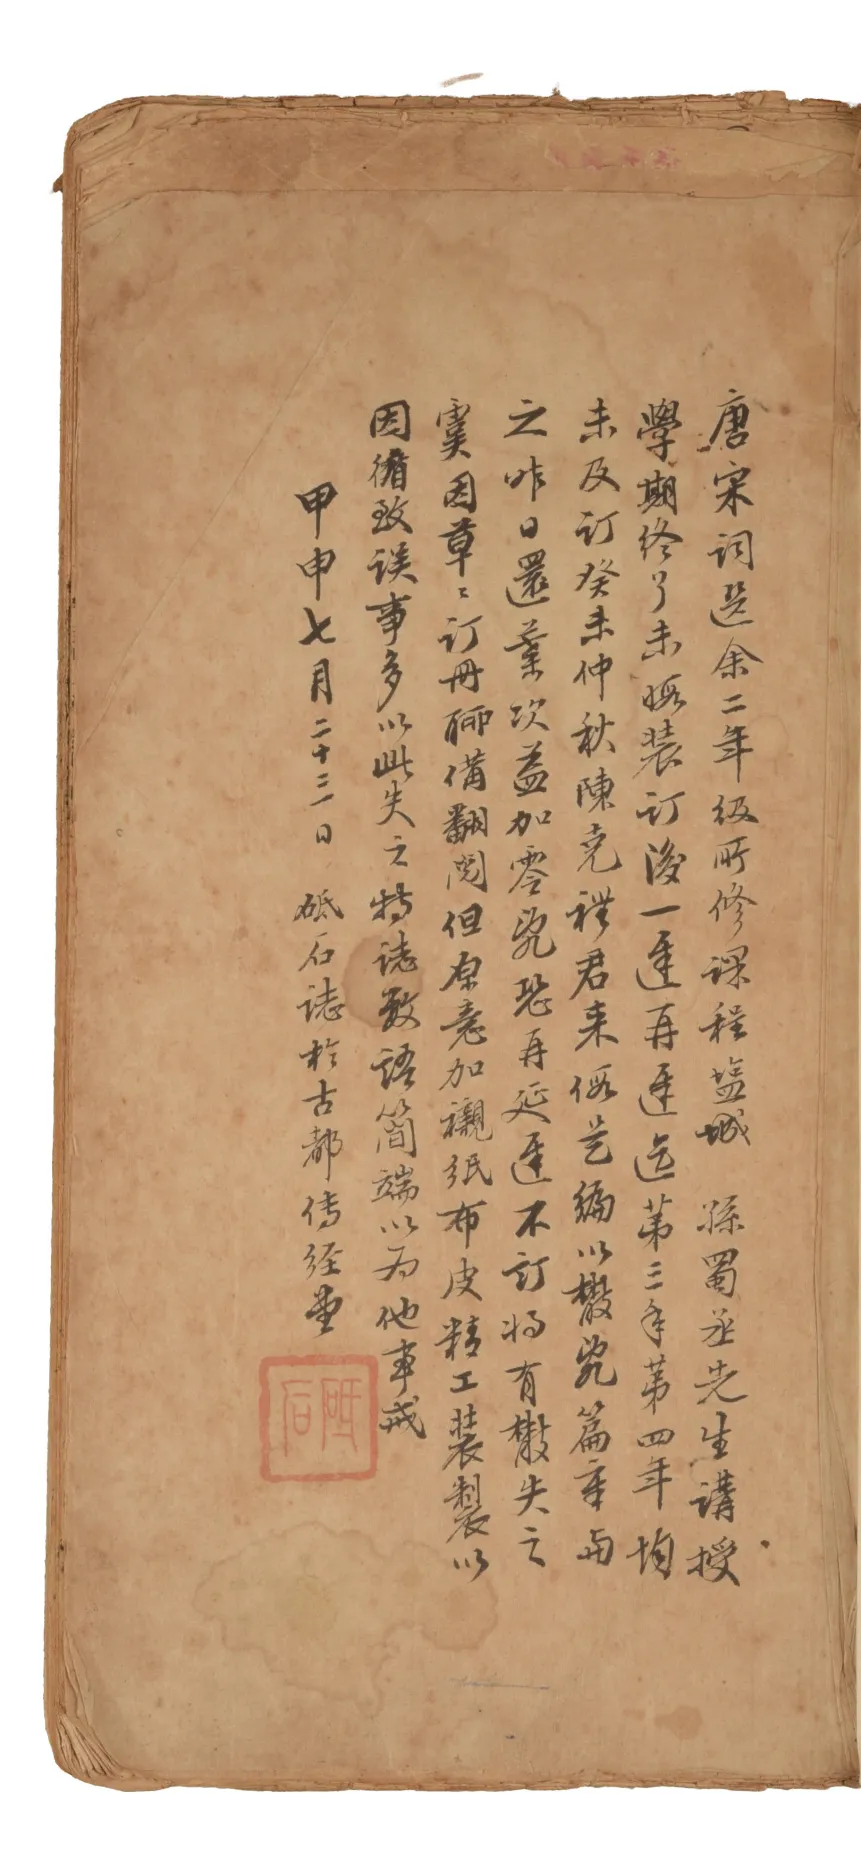 唐宋詞選余二年級所修課程塩城 孫蜀丞先生講授
學期終了未暇装訂後一遲再遲迄第三年第四年均
未及訂癸未仲秋陳堯禮君来假是编以散宂篇章与
之昨日還葉次益加零宂恐再延遲不訂将有散失之
虞因草〻訂冊聊備翻閱但原意加襯纸布皮精工装製以
因循致误事多以此失之特誌數語简端以为他事戒
甲申七月二十三日 砥石誌於古都傳经堂
砥石